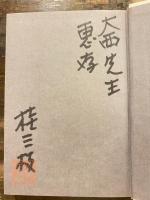 大西先生
恵存
桂三枝